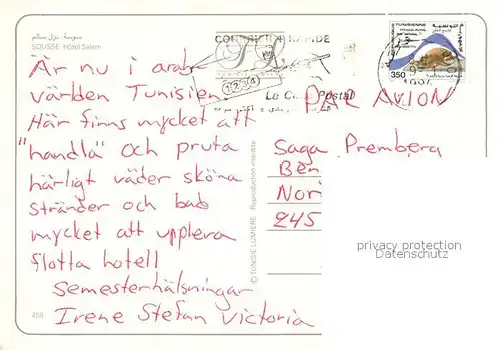 سوسة نزل سالم
SOUSSE Hôtel Salem
TUNISIENNE
350
Är nu i arab
världen Tunisien
1234
PAR AVION
Här finns mycket att
"handla" och pruta
härligt väder sköna
stränder och bad
mycket att uppleva
flotta hotell
Semesterhälsningar
Irene Stefan Victoria
Saga Premberg
Ben
Nori
245
© TUNISIE LUMIERE Reproduction interdite
458
privacy protection
Datenschutz